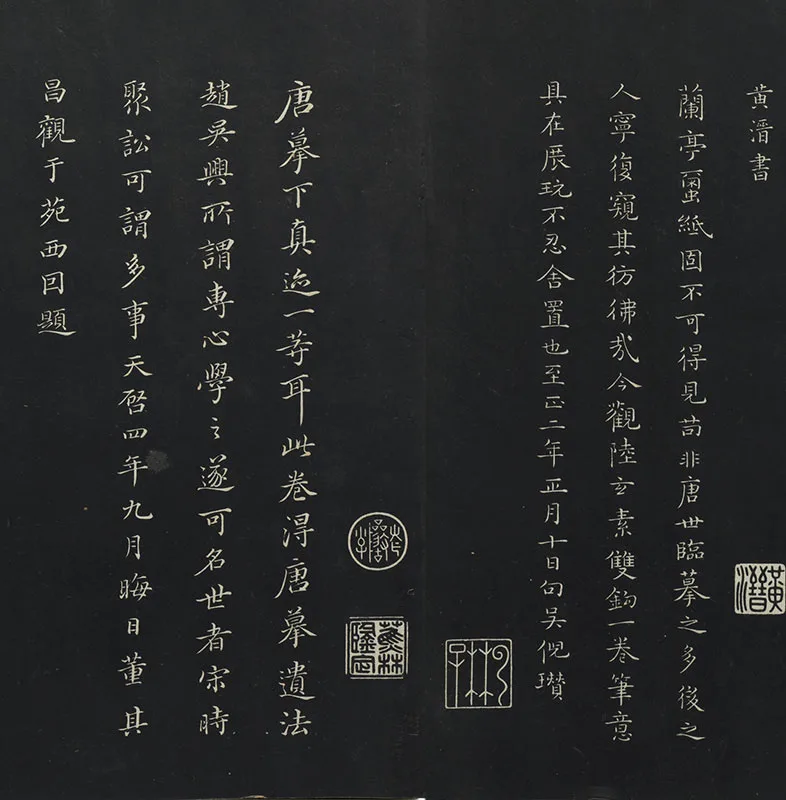 黄溍書
蘭亭蠒紙固不可得見苟非唐世臨摹之多後之
人寧復窺其彷彿哉今觀陸玄素雙鉤一卷筆意
具在展玩不忍舍置也至正二年正月十日句吳倪瓚
唐摹下真迹一等耳此卷得唐摹遺法
趙吳興所謂專心學之遂可名世者宋時
聚訟可謂多事天啓四年九月晦日董其
昌觀于苑西因題
黃溍